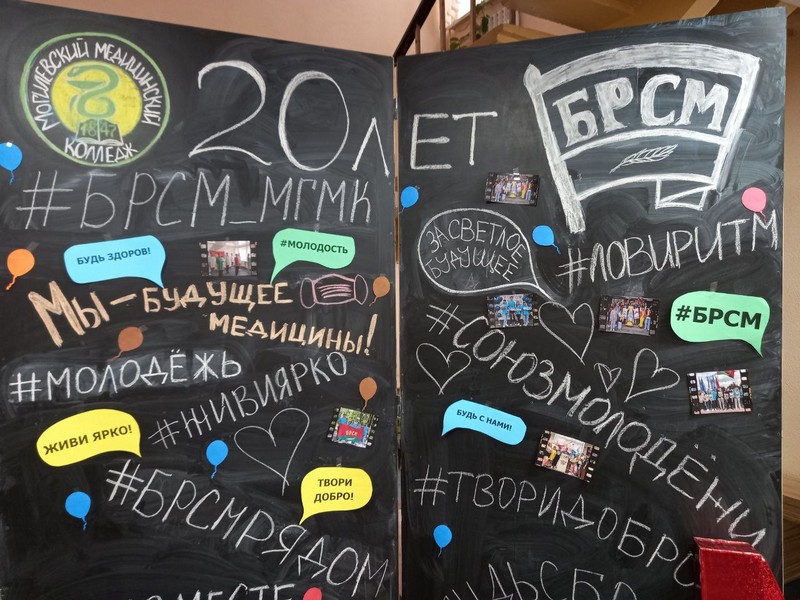 МОГИЛЕВСКИЙ МЕДИЦИНСКИЙ
1847
КОЛЛЕДЖ
20 ЛЕТ
БРСМ
#БРСМ_МГМК
БУДЬ ЗДОРОВ!
#МОЛОДОСТЬ
МЫ – БУДУЩЕЕ
МЕДИЦИНЫ!
#МОЛОДЁЖЬ
#ЖИВИЯРКО
ЖИВИ ЯРКО!
БРСМ
ТВОРИ
ДОБРО!
#БРСМРЯДОМ
ЗА СВЕТЛОЕ
БУДУЩЕЕ
#ЛОВИРИТМ
#БРСМ
#СОЮЗМОЛОДЁЖИ
БУДЬ С НАМИ!
#ТВОРИДОБРО